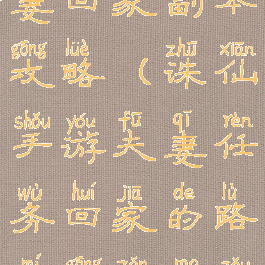 妻回家副本
gōng lüè zhū xiān
攻略（诛仙
shǒu yóu fū qī rèn
手游夫妻任
wù huí jiā de lù
务回家的路
mí gōng zěn me zǒu